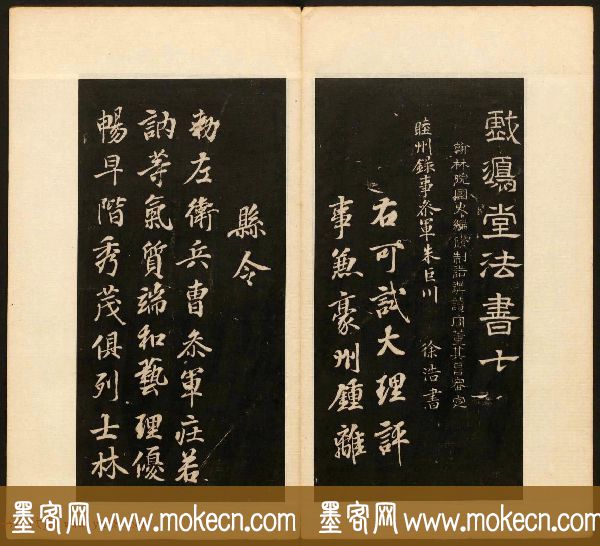 戲鴻堂法書七
翰林院國史編修制誥講讀官董其昌審定
睦州錄事參軍朱巨川 徐浩書
右可試大理評
事兼豪州鍾離
縣令
勅左衛兵曹參軍莊若
訥等氣質端和藝理優
暢早階秀茂俱列士林
墨客网 www.mokecn.com 墨客网 www.mokecn.com